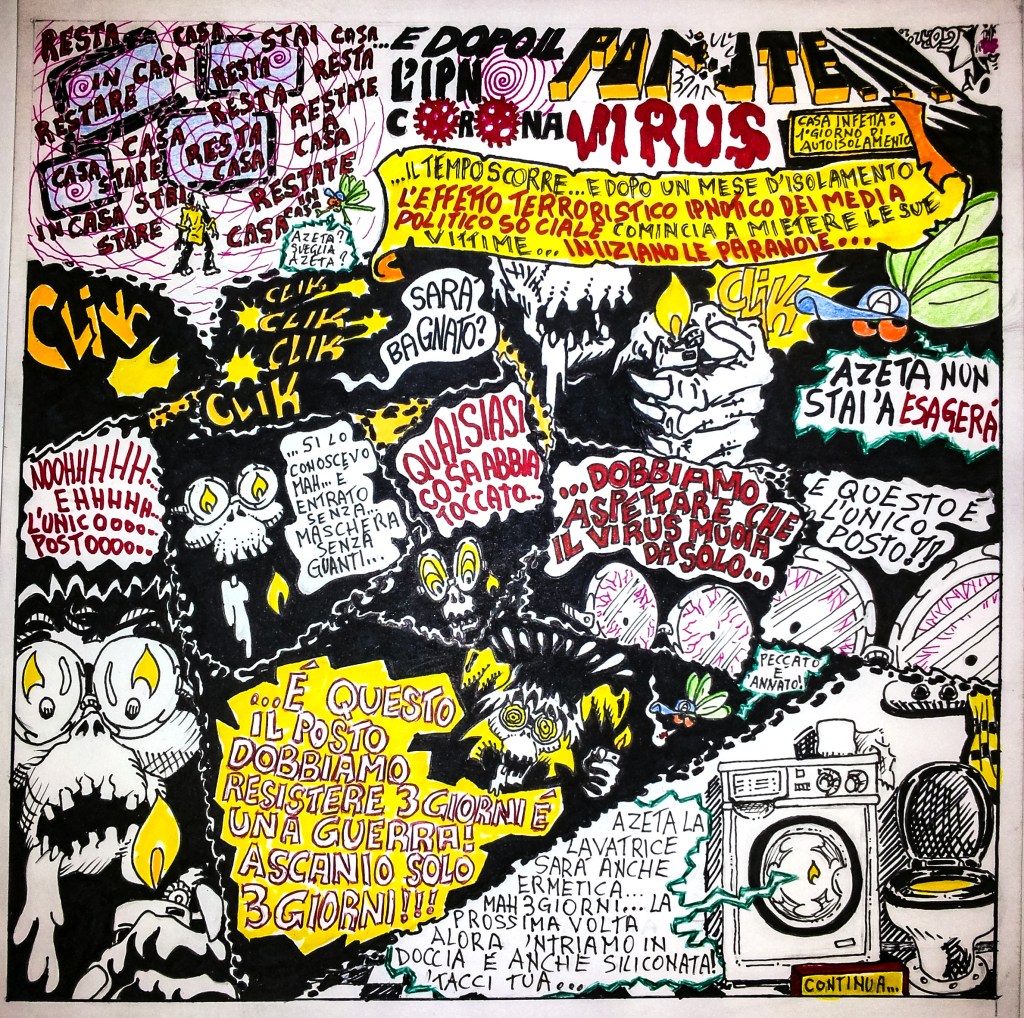 RESTA CASA STAI CASA
IN CASA RESTA RESTA
RESTARE RESTA RESTATE
CASA RESTA A
CASA STARE CASA CASA
STAI RESTATE
IN CASA IN
STARE CASA CASA
AZETA?
SVEGLIA
AZETA?
...E DOPO IL
L'IPNO
CORONA
VIRUS
CASA INFETTA:
1° GIORNO DI
AUTOISOLAMENTO
...IL TEMPO SCORRE...E DOPO UN MESE D'ISOLAMENTO
L'EFFETTO TERRORISTICO IPNOTICO DEI MEDIA
POLITICO SOCIALE COMINCIA A MIETERE LE SUE
VITTIME... INIZIANO LE PARANOIE...
CLIK
CLIK
CLIK
CLIK
CLIK
SARA'
BAGNATO?
CLIK
A
AZETA NON
STAI 'A ESAGERÁ
NOOHHHHH...
EHHHHH...
L'UNICOOOO...
POSTOOOOO...
...SI LO
CONOSCEVO
MAH... E
ENTRATO
SENZA...
MASCHERA
SENZA
GUANTI...
QUALSIASI
COSA ABBIA
TOCCATO...
...DOBBIAMO
ASPETTARE CHE
IL VIRUS MUOIA
DA SOLO...
E QUESTO É
L'UNICO
POSTO!?!
PECCATO
E
'ANNATO!
...É QUESTO
IL POSTO
DOBBIAMO
RESISTERE 3 GIORNI É
UNA GUERRA!
ASCANIO SOLO
3 GIORNI!!!
AZETA LA
LAVATRICE
SARÁ ANCHE
ERMETICA...
MAH 3 GIORNI... LA
PROSSIMA VOLTA
ALORA 'NTRIAMO IN
DOCCIA É ANCHE SILICONATA!
'TACCI TUA...
CONTINUA...